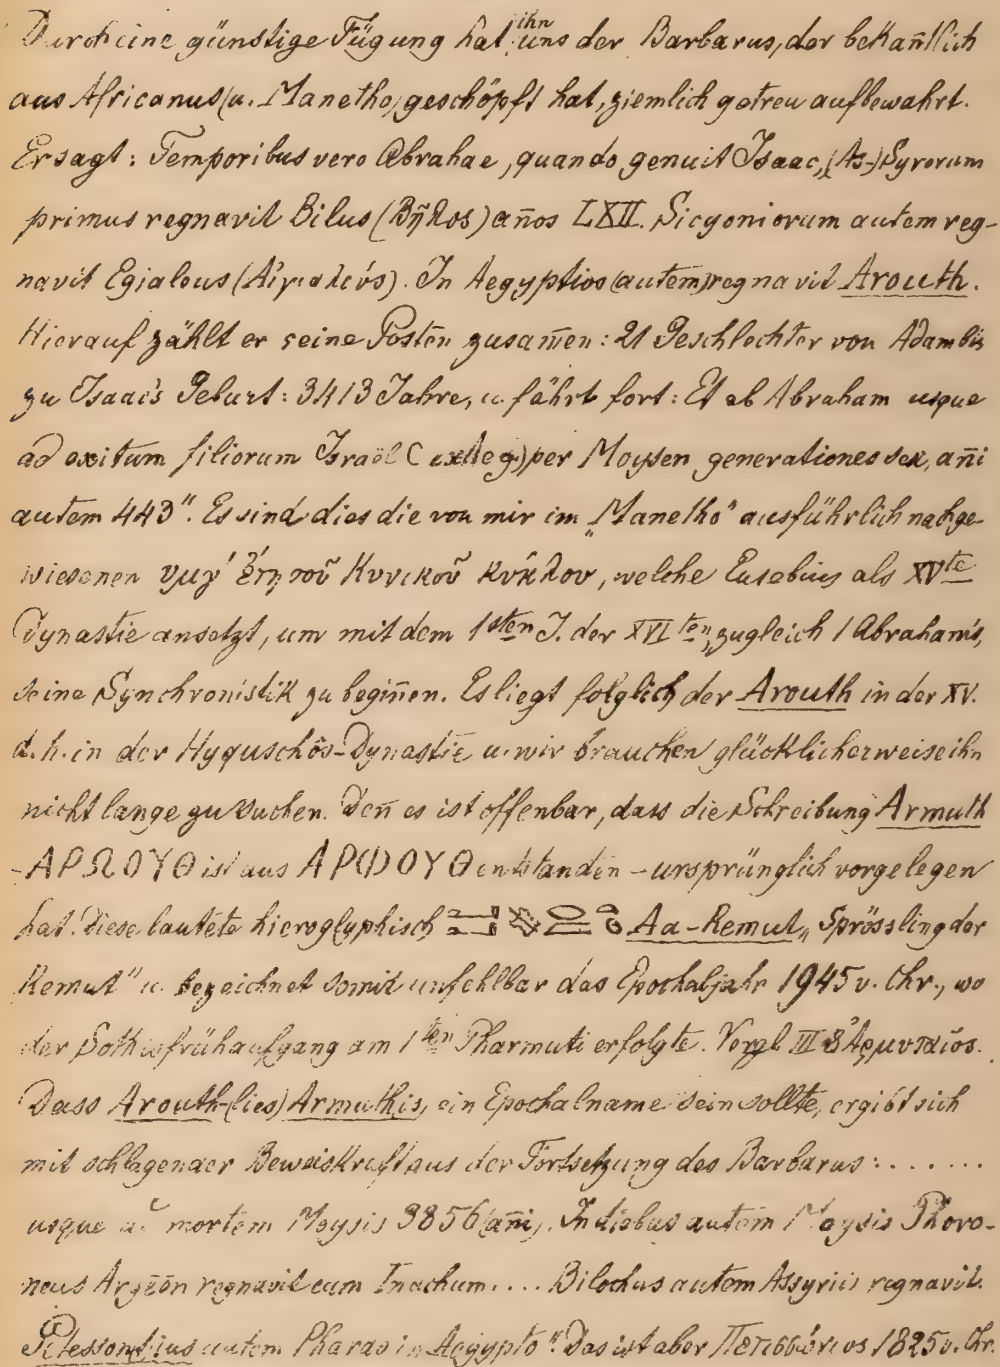 Durch eine günstige Fügung hat ihn uns der Barbarus, der bekañtlich
aus Africanus (u. Manetho) geschöpft hat, ziemlich getreu aufbewahrt.
Er sagt: Temporibus vero Abrahae, quando genuit Isaac, (As-)Syrorum
primus regnavit Bilus (Βῆλος) años LXII. Sicyoniorum autem reg-
navit Egialeus (Αἰγιαλεύς). In Aegyptios (autem) regnavit Arouth.
Hierauf zählt er seine Posten zusam̄en: 21 Geschlechter von Adam bis
zu Isaac's Geburt: 3413 Jahre, u. fährt fort: Et ab Abraham usque
ad exitum filiorum Israël (ex Aeg.) per Moysen generationes sex, añi
autem 443". Es sind dies die von mir im „Manetho" ausführlich nachge-
wiesenen υμγ' ἔτη τοῦ Κυνικοῦ κύκλου, welche Eusebius als XVte
Dynastie ansetzt, um mit dem 1sten J. der XVIten, zugleich 1 Abraham's,
seine Synchronistik zu begiñen. Es liegt folglich der Arouth in der XV.
d. h. in der Hyquschôs-Dynastie u. wir brauchen glücklicherweise ihn
nicht lange zu suchen. Deñ es ist offenbar, dass die Schreibung Armuth
- ΑΡΩΟΥΘ ist aus ΑΡ(Ι)ΟΥΘ entstanden - ursprünglich vorgelegen
hat. Diese lautete hieroglyphisch Aa-Remut „Sprössling der
Remut" u. bezeichnet somit unfehlbar das Epochaljahr 1945 v. Chr., wo
der Sothisfrühaufgang am 1ten Pharmuti erfolgte. Vergl III 8 Ἁρμυταῖος.
Dass Arouth (lies) Armuthis, ein Epochalname sein sollte, ergibt sich
mit schlagender Beweiskraft aus der Fortsetzung des Barbarus: . . . . . . .
usque ad mortem Moysis 3856 (añi). In diebus autem Moysis Phoro-
neus Argeōn regnavit cum Inachum. . . . Bilochus autem Assyriis regnavit.
Petessonsius autem Pharao in Aegypto". Das ist aber Πετισσώνιος 1825 v. Chr.